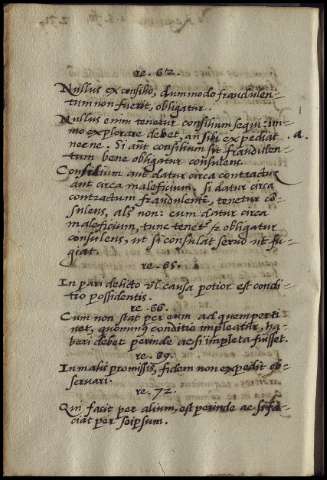 re. 62.
Nullus ex consilio, dummodo fraudulen-
tum non fuerit, obligatur.
Nullus enim tenetur consilium sequi: im-
mo explorare debet, an sibi expediat
nec ne. Si aut consilium sit fraudulen- a
tum bene obligatur consulens.
Consilium aut datur circa contractus
aut circa maleficium, si datur circa
contractum fraudulenter, tenetur co-
sulens, als non: cum datur circa
maleficium, tunc tenetr et obligatur
consulens, ut si consulat servo ut fu-
giat.
re. 65.
In pari delicto vl causa potior est condi-
tio possidentis.
re. 66.
Cum non stat per eum ad quem perti
net, quominus conditio impleatur, ha-
beri debet perinde ac si impleta fuisset.
re. 69.
In malis promissis, fidem non expedit ob-
servari.
re. 72.
Qui facit per alium, est perinde ac si fa-
ciat per seipsum.